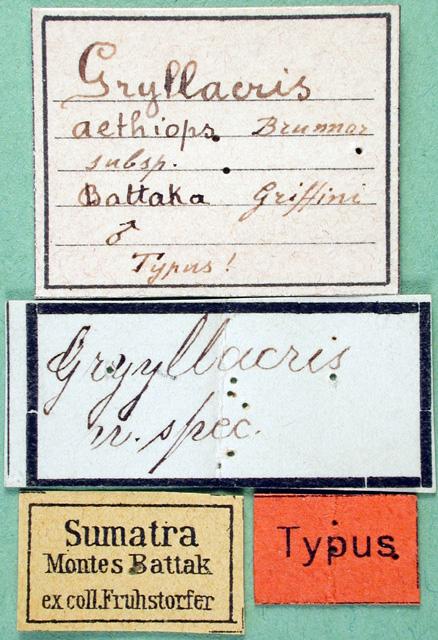 Gryllacris
aethiops Brunner
subsp.
Battaka Griffini
♂
Typus!
Gryllacris
n. spec.
Sumatra
Montes Battak
ex coll. Fruhstorfer
Typus